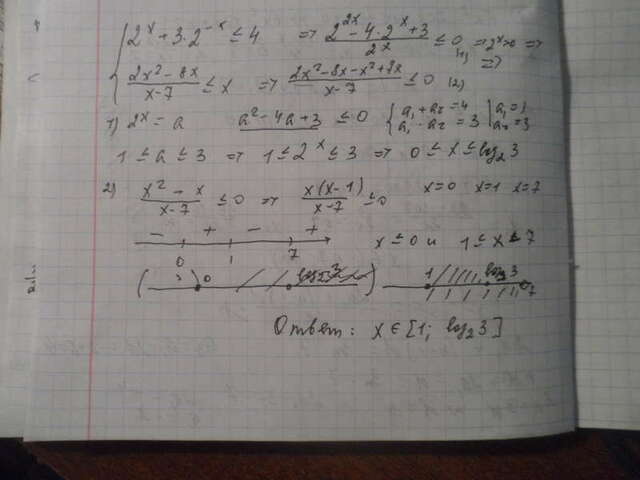 2ˣ + 3·2⁻ˣ ≤ 4 ⇒ (2²ˣ - 4·2ˣ + 3)/2ˣ ≤ 0 (1) ⇒ 2ˣ>0 ⇒
(2x² - 8x)/(x-7) ≤ x ⇒ (2x² - 8x - x² + 7x)/(x-7) ≤ 0 (2)
1) 2ˣ = a a² - 4a + 3 ≤ 0 { a₁ + a₂ = 4 a₁·a₂ = 3 | a₁ = 1 a₂ = 3
1 ≤ a ≤ 3 ⇒ 1 ≤ 2ˣ ≤ 3 ⇒ 0 ≤ x ≤ log₂3
2) (x² - x)/(x-7) ≤ 0 ⇒ x(x-1)/(x-7) ≤ 0 x=0 x=1 x=7
- + - +
0 1 7 x ≤ 0 и 1 ≤ x < 7
0 1 log₂3 7
Ответ: x ∈ [1; log₂3]